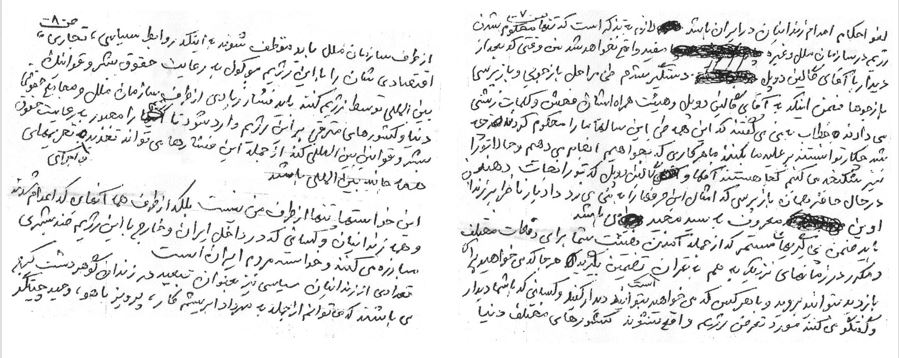 ص-۷-
لغو احکام اعدام زندانیان در ایران باشد لازم به تذکر است که تنها محکوم شدن
رژیم در سازمان ملل و غیره مفید واقع نخواهد شد من وقتی که بعد از
دیدار با آقای گالین دوپل دستگیر شدم طی مراحل بازجویی و بازپرسی
بازجوها ضمن اینکه به آقای گالین دوپل و هیئت همراه استان فحش و کلمات رشتی
می دادند خطاب به من می گفتند که این همه طی این سالها ما را محکوم کردند چه
شد چکار توانستند بر علیه ما بکنند ما هر کاری که بخواهیم انجام می دهیم و حالا تو را
نیز شکنجه می کنیم کجا هستند آقای گالین دوپل که تو را نجات دهند من
در حال حاضر همان بازپرسی که امثال این حرفها را به من می زد دادیار ناظر بر زندان
اوین معروف به سید مجید می باشد
باید ضمن پی گیریها مستمر که از جمله آمدن هیئت شما برای دفعات مختلف
و مکرر در زمانهای نزدیک به هم به تهران تضمین بگیرند هر جا که می خواهید برای
بازدید بتوانند بروید و با هر کس که می خواهید بتوانید دیدار کنید و کسانی که با شما دیدار
و گفتگو می کنند مورد تعرض رژیم واقع نشوند کشورهای مختلف دنیا
ص-۸-
از طرف سازمان ملل باید متوقف شوند به اینکه روابط سیاسی، تجاری،
اقتصادی شان را با این رژیم موکول به رعایت حقوق بشر و قوانین
بین المللی توسط رژیم کنند باید فشار زیادی از طرف سازمان ملل و مجامع حقوقی
دنیا و کشورهای مترقی بر این رژیم وارد شود تا را مجبور به رعایت حقوق
بشر و قوانین بین المللی کند از جمله این فشارها می تواند تحریم های
همه جانبه بین المللی باشد
این خواستها تنها از طرف من نیست بلکه از طرف همه آنهای که اعدام شدند
و همه زندانیان و کسانی که در داخل ایران و خارج با این رژیم ضد بشری
مبارزه می کنند و خواسته مردم ایران است
تعدادی از زندانیان سیاسی نیز بعنوان تبعید در زندان گوهردشت کرج
می باشند که می توانم از جمله به مهرداد ابریشم کار، پرویز یاهو، وحید چنگیگر